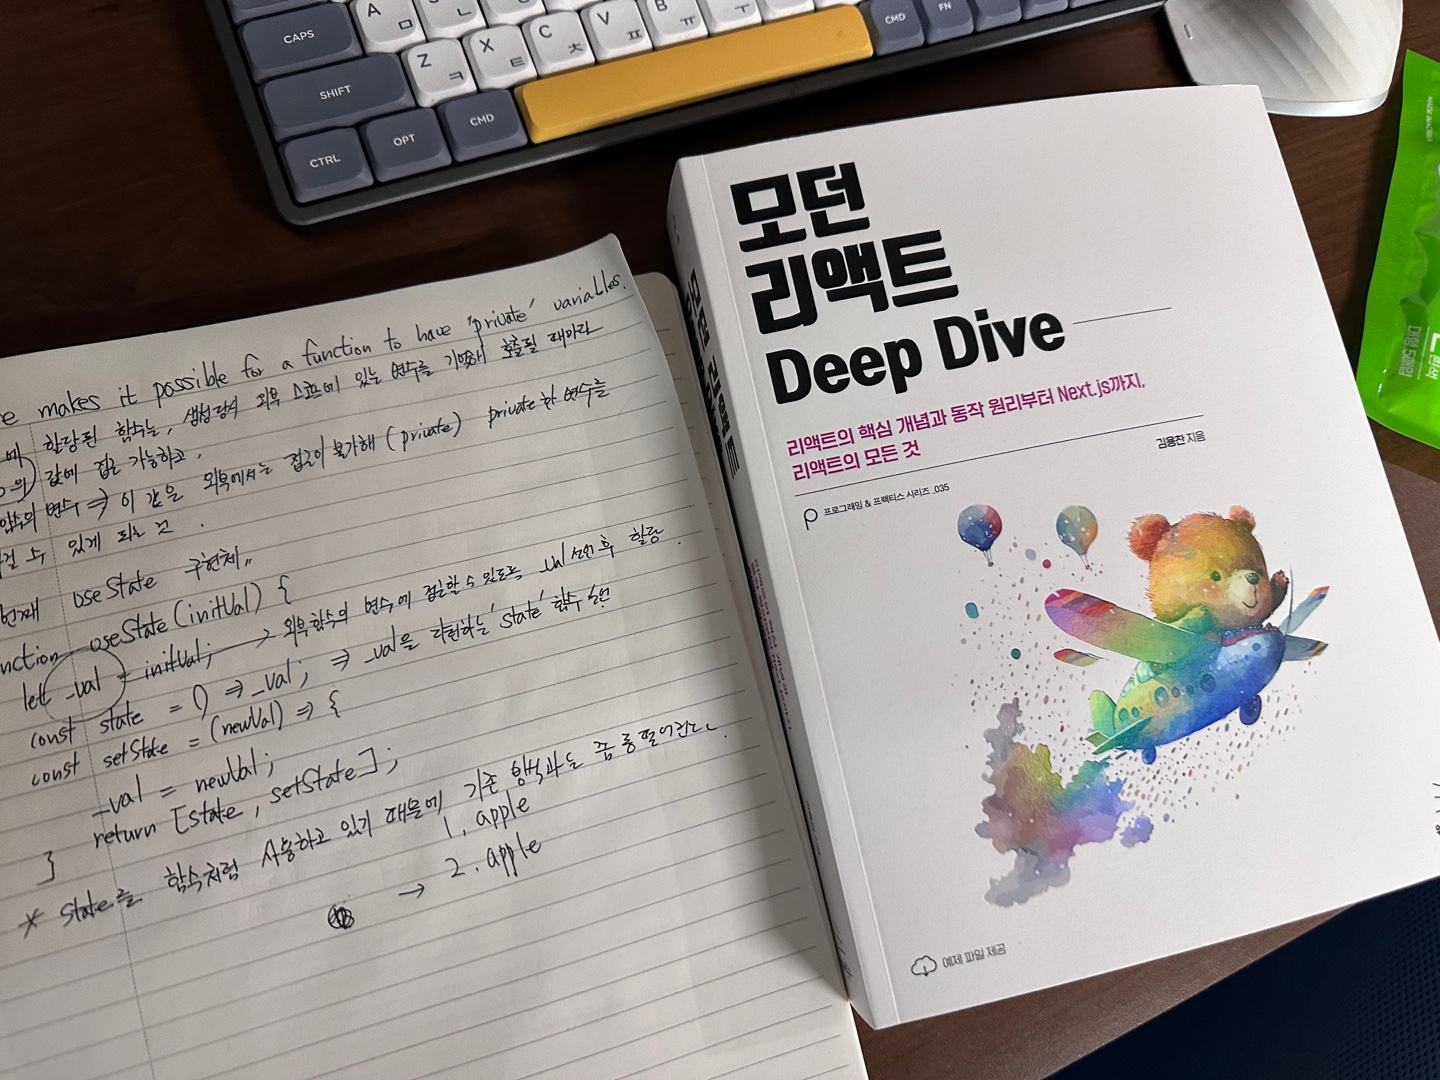 CAPS
A
ㅁ
ㄴ
SHIFT
Z
ㅋ
X
ㅌ
C
ㅊ
V
ㅍ
B
ㅠ
ㅜ
CMD
FN
CTRL
OPT
CMD
makes it possible for a function to have 'private' variables.
에 할당된 함수는, 생성당시 외부 스코프에 있는 변수를 기억해 호출될 때마다
값에 접근 가능하고,
변수 ⇒ 이 값은 외부에서는 접근이 불가해 (private) private한 변수를
수 있게 되는 것.
번째 useState 구현체
nction useState(initVal) {
let _val = initVal; → 외부함수의 변수에 접근할 수 있도록 _val 선언 후 할당.
const state = () => _val; ⇒ _val을 리턴하는 'state' 함수 선언
const setState = (newVal) => {
_val = newVal;
return [state, setState];
}
* state를 함수처럼 사용하고 있기 때문에 기존 방식과는 좀
1. apple
→ 2. apple
모던
리액트
Deep Dive
리액트의 핵심 개념과 동작 원리부터 Next.js까지,
리액트의 모든 것
김용찬 지음
프로그래밍 & 프랙티스 시리즈_035
예제 파일 제공
모던 리액트
대형 50매입